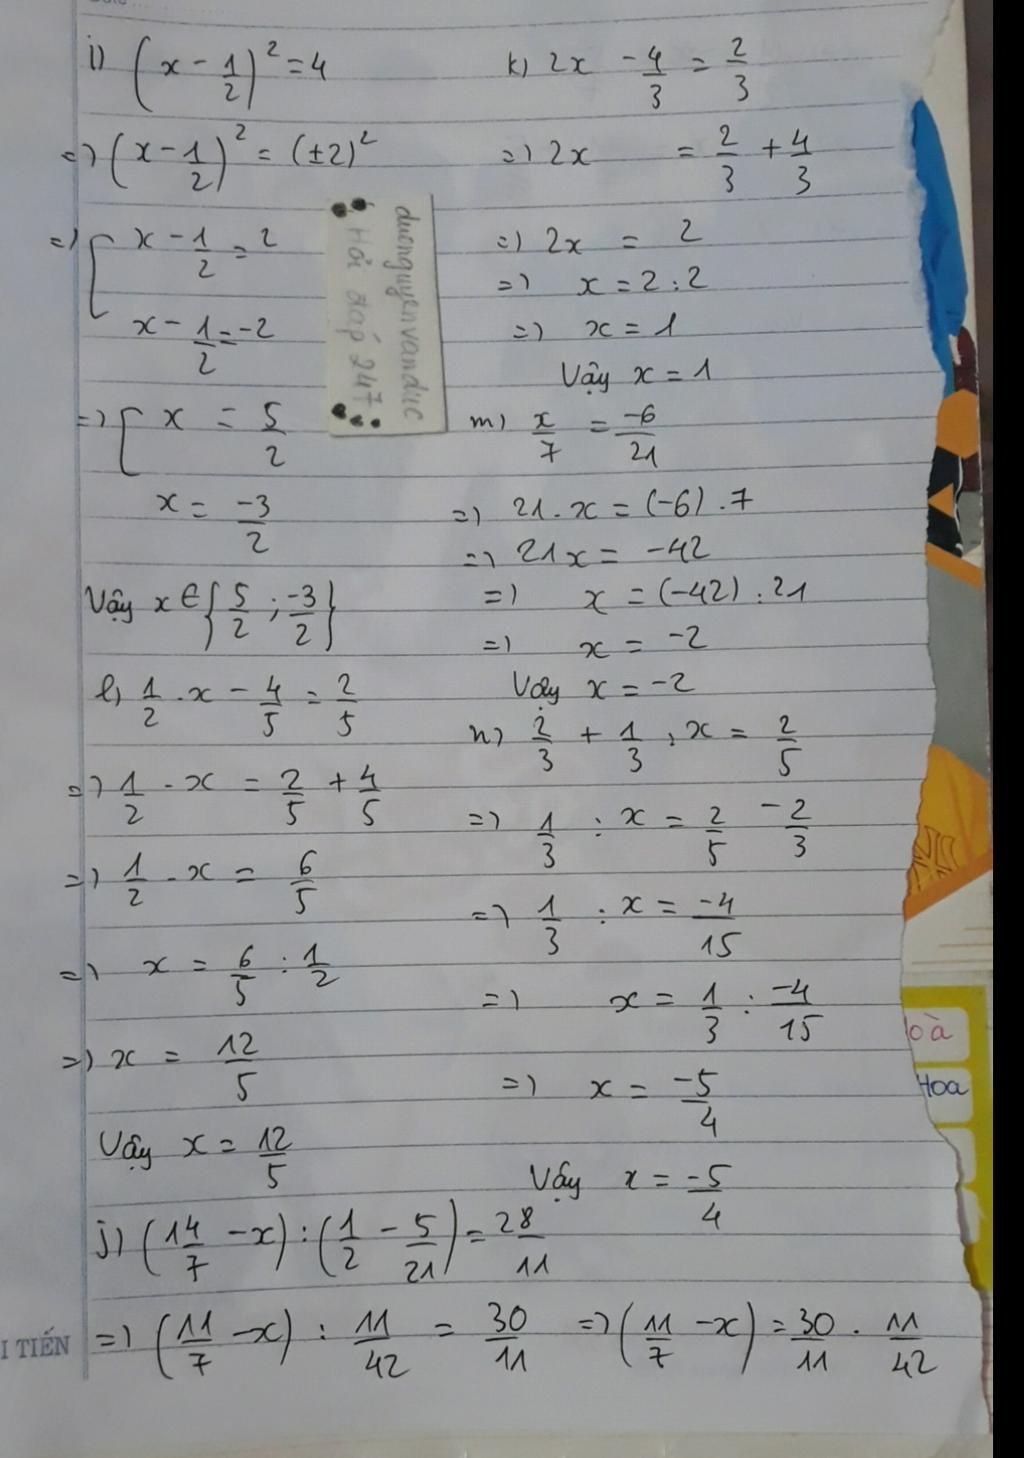 i) (x - 1/2)² = 4
=) (x - 1/2)² = (±2)²
=) [ x - 1/2 = 2
x - 1/2 = -2
=) [ x = 5/2
x = -3/2
Vậy x ∈ {5/2 ; -3/2}
l, 1/2 . x - 4/5 = 2/5
=) 1/2 . x = 2/5 + 4/5
=) 1/2 . x = 6/5
=) x = 6/5 : 1/2
=) x = 12/5
Vậy x = 12/5
k) 2x - 4/3 = 2/3
=) 2x = 2/3 + 4/3
=) 2x = 2
=) x = 2 : 2
=) x = 1
Vậy x = 1
m) x/7 = -6/21
=) 21 . x = (-6) . 7
=) 21x = -42
=) x = (-42) : 21
=) x = -2
Vậy x = -2
n) 2/3 + 1/3 : x = 2/5
=) 1/3 : x = 2/5 - 2/3
=) 1/3 : x = -4/15
=) x = 1/3 : -4/15
=) x = -5/4
Vậy x = -5/4
j) (14/7 - x) : (1/2 - 5/21) = 28/11
=) (11/7 - x) : 11/42 = 30/11 =) (11/7 - x) = 30/11 . 11/42
ducnguyenvanduc
Hỏi đáp 247
I TIẾN
oà
Hoa